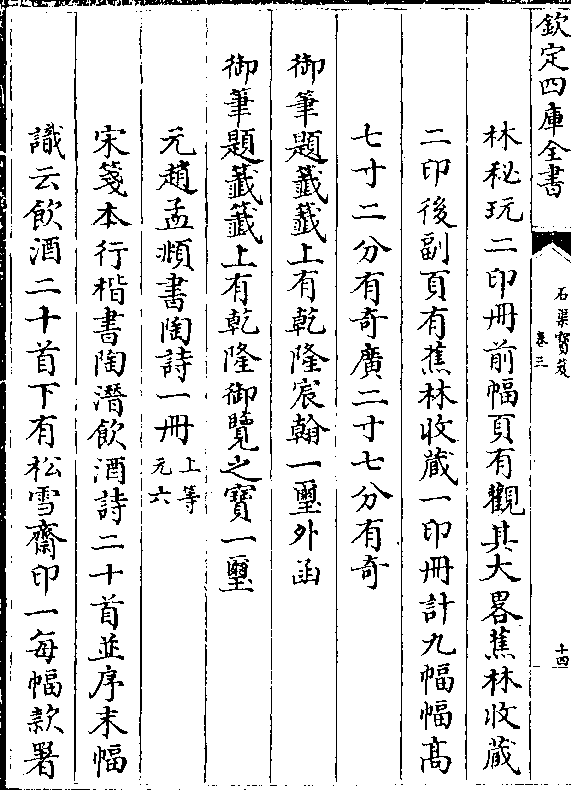 欽定四庫全書
石渠寳笈
卷三
十四
林秘玩二印册前幅頁有觀其大畧蕉林收藏
二印後副頁有蕉林收藏一印册計九幅幅髙
七寸二分有奇廣二寸七分有奇
御筆題籤籤上有乾隆宸翰一璽外函
御筆題籤籤上有乾隆御覽之寳一璽
元趙孟頫書陶詩一册上等
元六
宋箋本行楷書陶潛飲酒詩二十首並序末幅
識云飲酒二十首下有松雪齋印一每幅款署